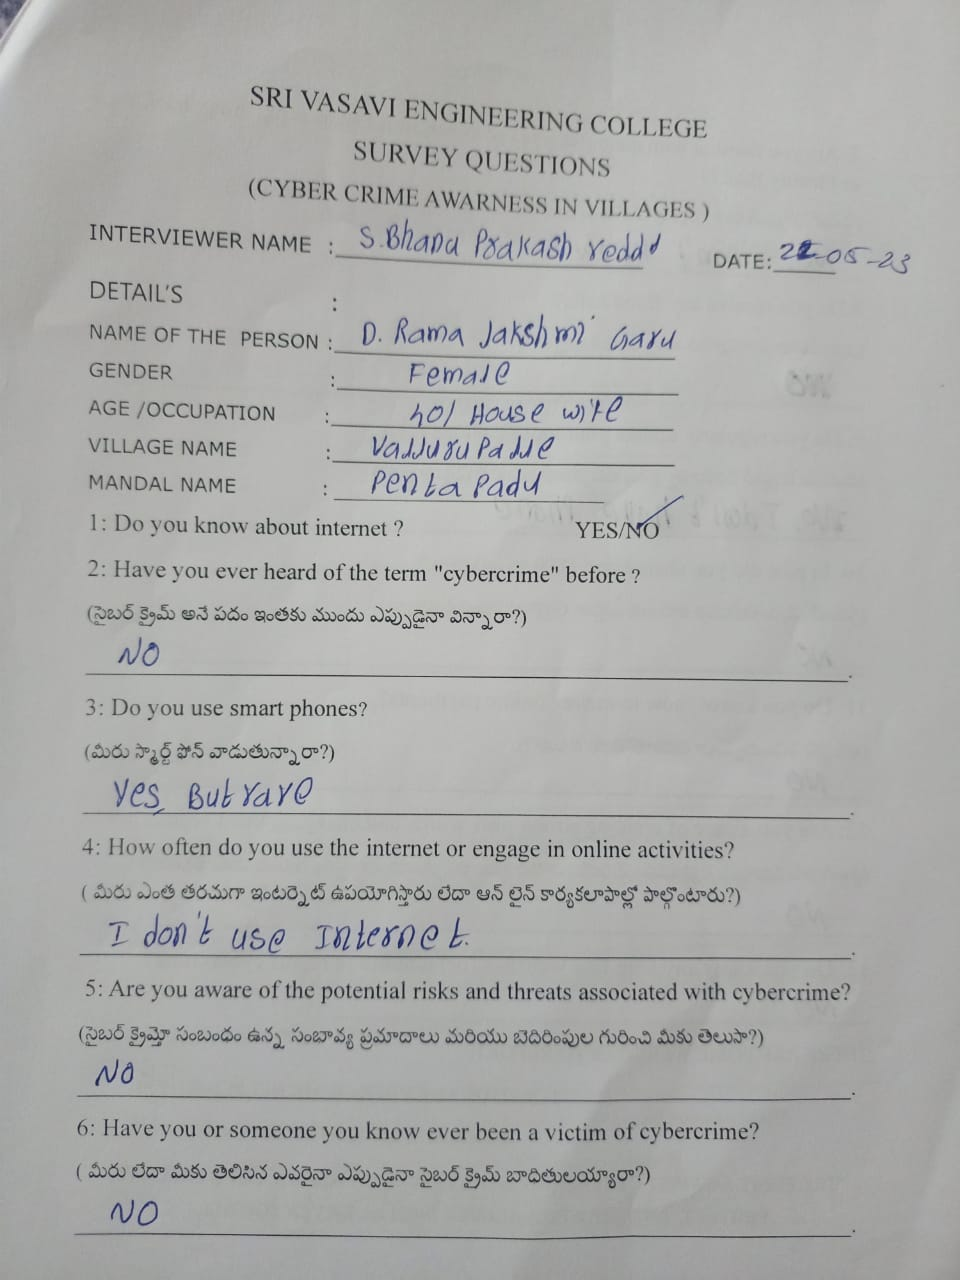 SRI VASAVI ENGINEERING COLLEGE
SURVEY QUESTIONS
(CYBER CRIME AWARNESS IN VILLAGES )
INTERVIEWER NAME : S.Bhanu Prakash reddy DATE: 22-05-23
DETAIL'S :
NAME OF THE PERSON : D. Rama lakshmi Garu
GENDER : Female
AGE /OCCUPATION : 40/ House wife
VILLAGE NAME : ValluruPalle
MANDAL NAME : Penta Padu
1: Do you know about internet ? YES/NO
2: Have you ever heard of the term "cybercrime" before ?
(సైబర్ క్రైమ్ అనే పదం ఇంతకు ముందు ఎప్పుడైనా విన్నారా?)
NO
3: Do you use smart phones?
(మీరు స్మార్ట్ ఫోన్ వాడుతున్నారా?)
Yes, But rare
4: How often do you use the internet or engage in online activities?
( మీరు ఎంత తరచుగా ఇంటర్నెట్ ఉపయోగిస్తారు లేదా ఆన్ లైన్ కార్యకలాపాల్లో పాల్గొంటారు?)
I don't use Internet.
5: Are you aware of the potential risks and threats associated with cybercrime?
(సైబర్ క్రైమ్తో సంబంధం ఉన్న సంభావ్య ప్రమాదాలు మరియు బెదిరింపుల గురించి మీకు తెలుసా?)
NO
6: Have you or someone you know ever been a victim of cybercrime?
( మీరు లేదా మీకు తెలిసిన ఎవరైనా ఎప్పుడైనా సైబర్ క్రైమ్ బాధితులయ్యారా?)
NO